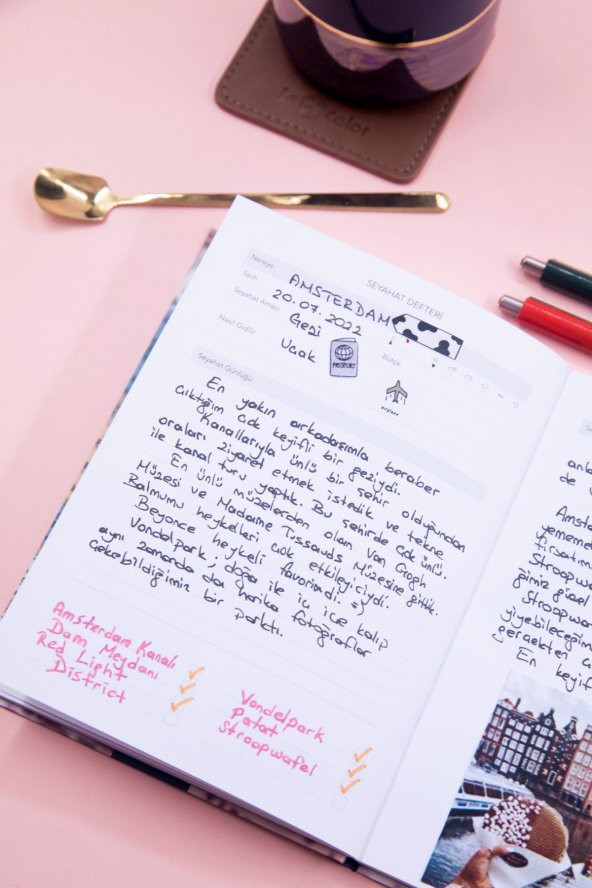 SEYAHAT DEFTERİ
Nereye
AMSTERDAM
Tarih
20.07.2022
Seyahat Amacı
Gezi
Nasıl Gidilir
Uçak
PASSPORT
Bütçe
airplane
Seyahat Günlüğü
En yakın arkadaşımla beraber
çıktığım çok keyifli bir geziydi.
Kanallarıyla ünlü bir şehir olduğundan
oraları ziyaret etmek istedik ve tekne
ile kanal turu yaptık. Bu şehirde çok ünlü.
En ünlü müzelerden olan Van Gogh
Müzesi ve Madame Tussauds Müzesine gittik.
Balmumu heykelleri çok etkileyiciydi.
Beyonce heykeli favorimdi =)
Vondelpark, doğa ile iç içe kalıp
aynı zamanda da harika fotoğraflar
çekebildiğimiz bir parktı.
Amsterdam Kanalı
Dam Meydanı
Red Light
District
Vondelpark
Patat
Stroopwafel
de
Amste
yememe
fırsatım
Stroopwa
Stroopwa
yiyebileceğim
gerçekten
En keyif